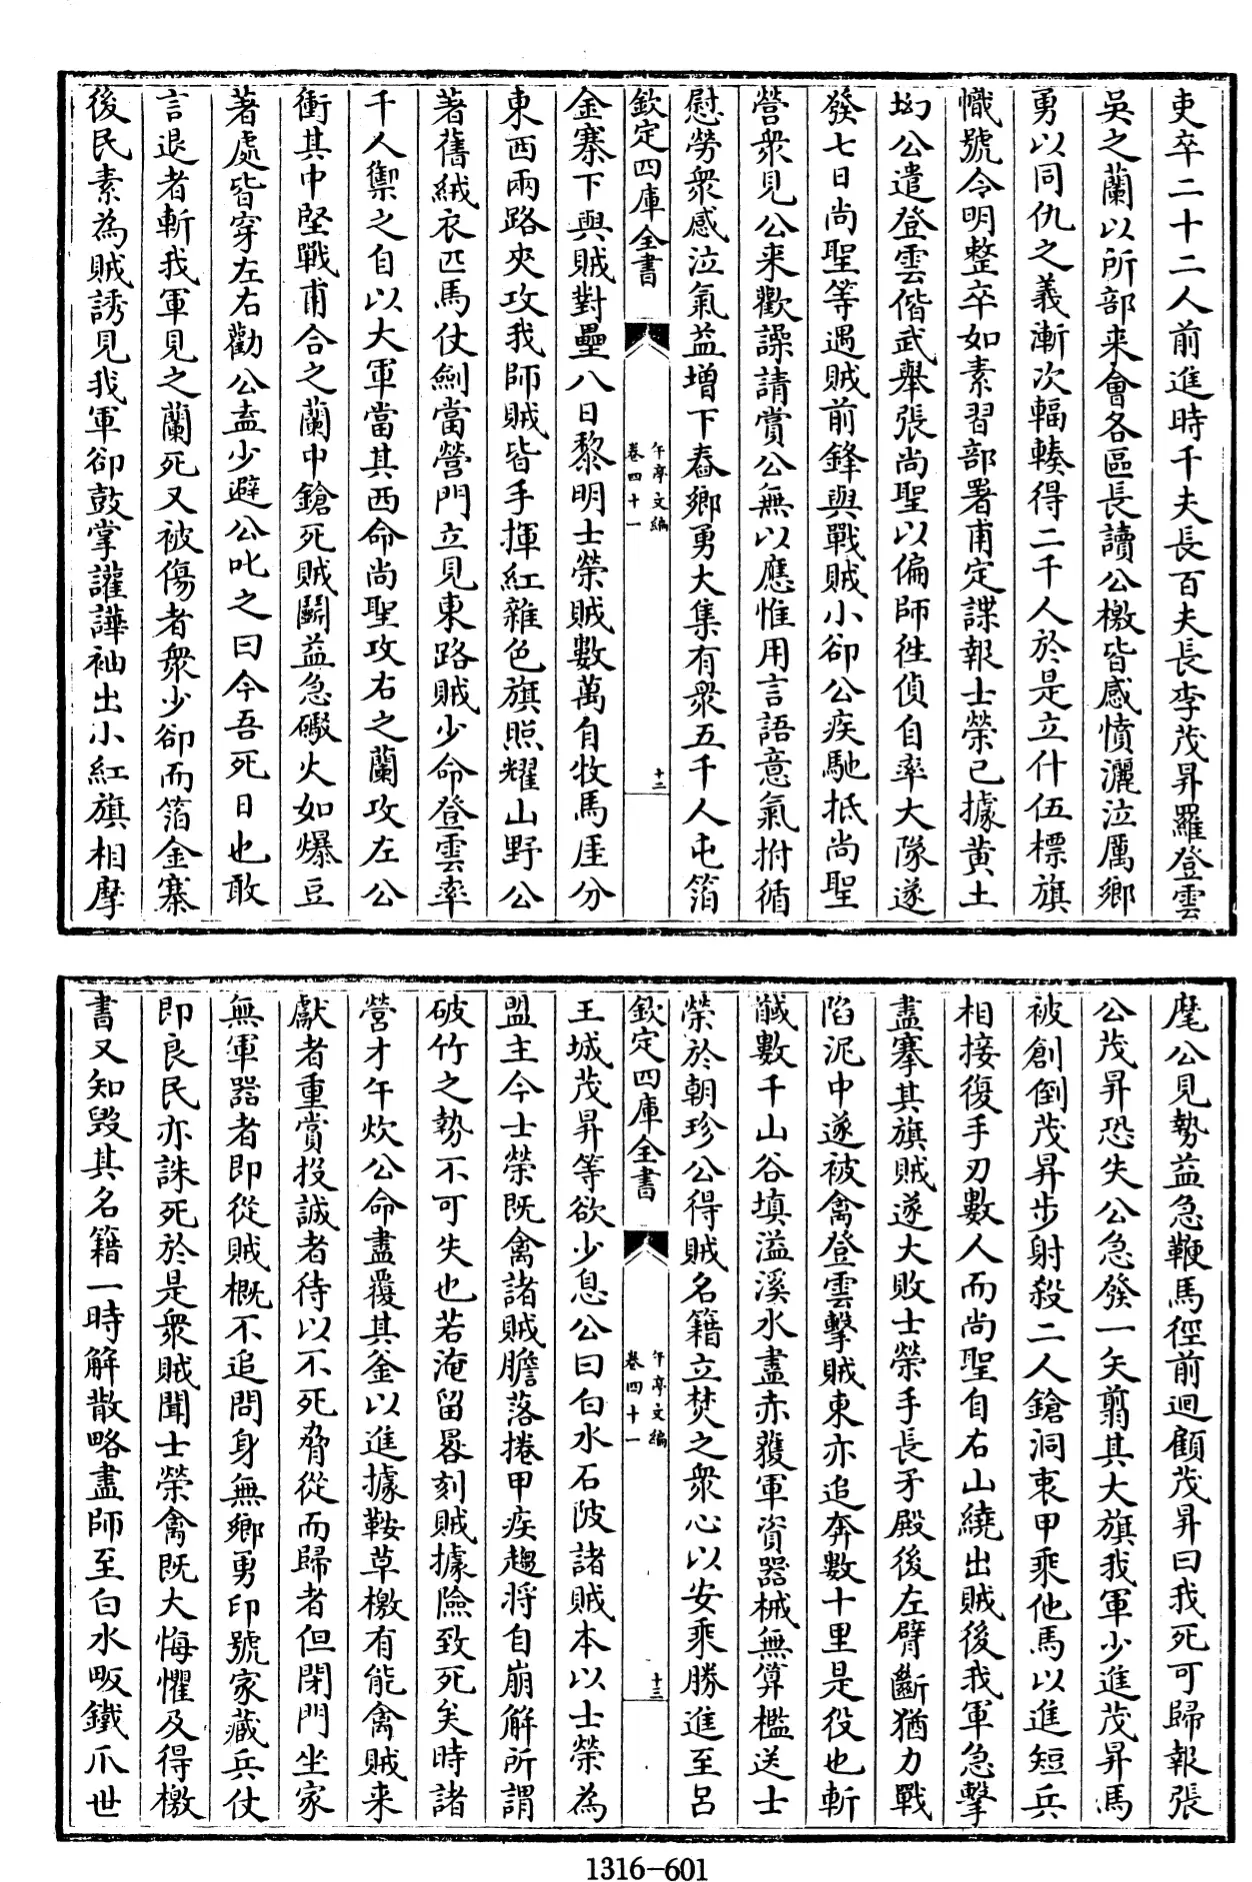 吏卒二十二人前進時千夫長百夫長李茂昇羅登雲
吳之蘭以所部来會各區長讀公檄皆感憤灑泣厲鄉
勇以同仇之義漸次輻輳得二千人於是立什伍標旗
幟號令明整卒如素習部署甫定諜報士榮已據黄土
㘭公遣登雲偕武舉張尚聖以偏師徃偵自率大隊遂
發七日尚聖等遇賊前鋒與戰賊小卻公疾馳抵尚聖
營衆見公来歡譟請賞公無以應惟用言語意氣拊循
慰勞衆感泣氣益增下舂鄉勇大集有衆五千人屯箔
欽定四庫全書
午亭文編
卷四十一
十二
金寨下與賊對壘八日黎明士榮賊數萬自牧馬厓分
東西兩路夾攻我師賊皆手揮紅雜色旗照耀山野公
著舊絨衣匹馬仗劍當營門立見東路賊少命登雲率
千人禦之自以大軍當其西命尚聖攻右之蘭攻左公
衝其中堅戰甫合之蘭中鎗死賊鬭益急礮火如爆豆
著處皆穿左右勸公盍少避公叱之曰今吾死日也敢
言退者斬我軍見之蘭死又被傷者衆少卻而箔金寨
後民素為賊誘見我軍卻鼓掌讙譁袖出小紅旗相摩
麾公見勢益急鞭馬徑前迴顧茂昇曰我死可歸報張
公茂昇恐失公急發一矢翦其大旗我軍少進茂昇馬
被創倒茂昇步射殺二人鎗洞衷甲乘他馬以進短兵
相接復手刃數人而尚聖自右山繞出賊後我軍急擊
盡搴其旗賊遂大敗士榮手長矛殿後左臂斷猶力戰
陷泥中遂被禽登雲擊賊東亦追奔數十里是役也斬
馘數千山谷填溢溪水盡赤獲軍資器械無算檻送士
榮於朝珍公得賊名籍立焚之衆心以安乘勝進至呂
欽定四庫全書
午亭文編
卷四十一
十三
王城茂昇等欲少息公曰白水石陂諸賊本以士榮為
盟主今士榮既禽諸賊膽落捲甲疾趨將自崩解所謂
破竹之勢不可失也若淹留晷刻賊據險致死矣時諸
營才午炊公命盡覆其釜以進據鞍草檄有能禽賊来
獻者重賞投誠者待以不死脅從而歸者但閉門坐家
無軍器者即從賊概不追問身無鄉勇印號家藏兵仗
即良民亦誅死於是衆賊聞士榮禽既大悔懼及得檄
書又知毀其名籍一時解散略盡師至白水畈鐵爪世
1316-601